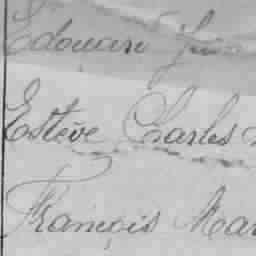 Edouard
Estève Charles
François Mar